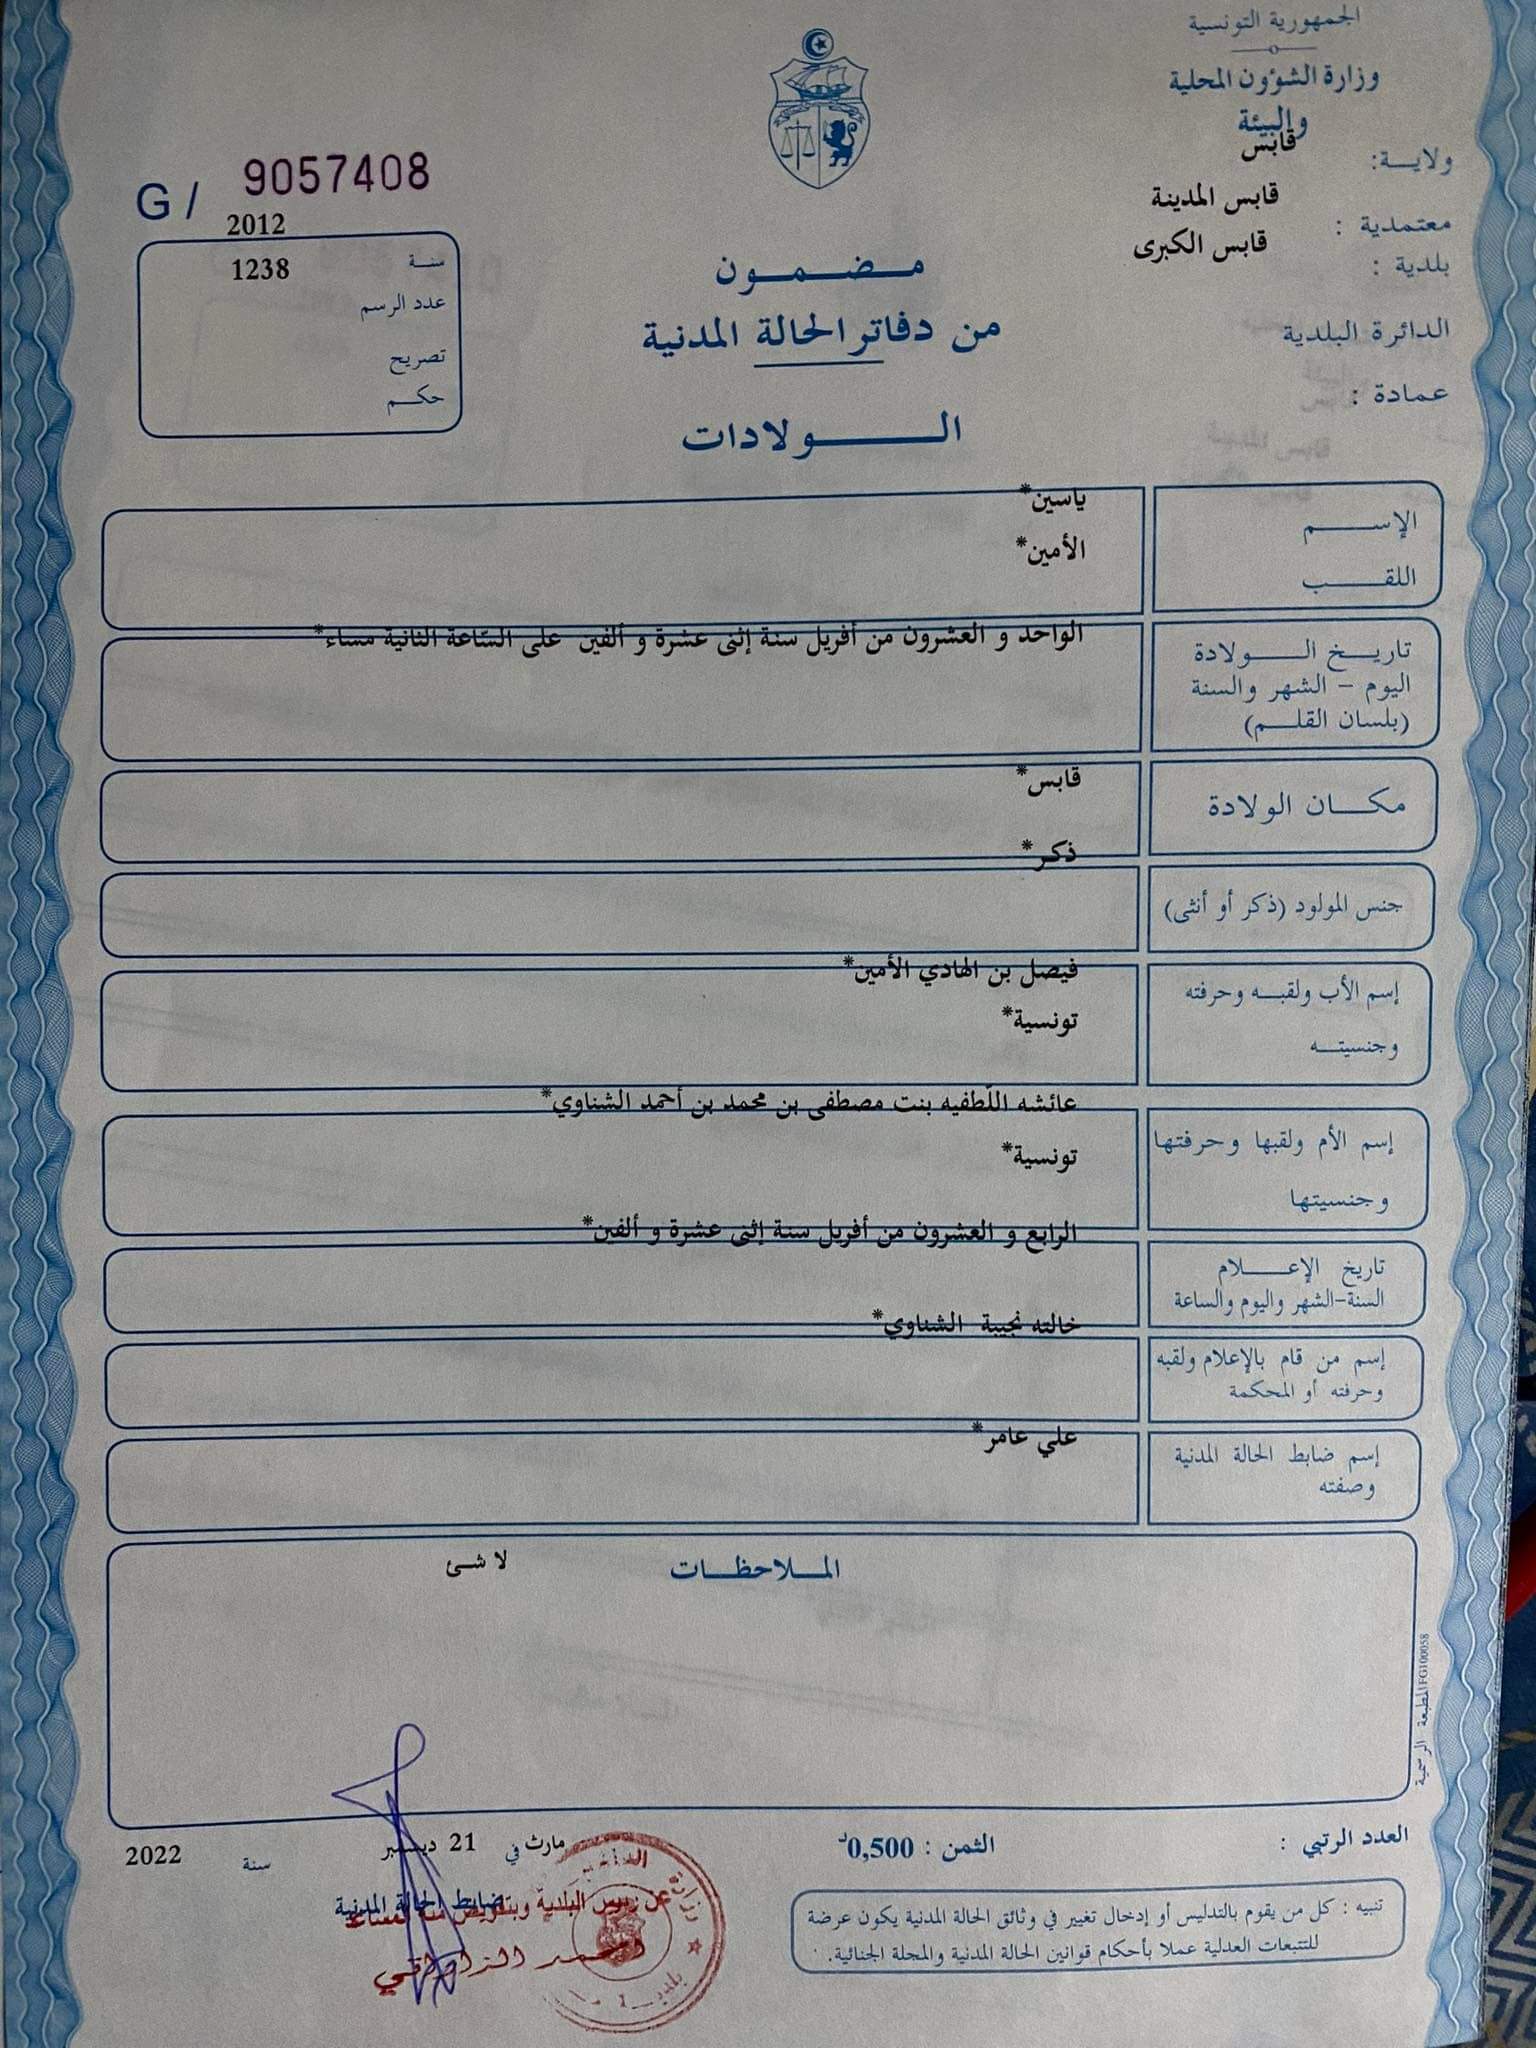 الجمهورية التونسية
وزارة الشؤون المحلية
والبيئة
ولاية: قابس
معتمدية : قابس المدينة
بلدية : قابس الكبرى
الدائرة البلدية
عمادة :
G / 9057408
سنة 2012
عدد الرسم 1238
تصريح
حكم
مضمون
من دفاتر الحالة المدنية
الولادات
الإسم ياسين*
اللقب الأمين*
تاريخ الولادة
اليوم - الشهر والسنة
(بلسان القلم)
الواحد و العشرون من أفريل سنة إثنى عشرة و ألفين على السّاعة الثانية مساء*
مكان الولادة قابس*
جنس المولود (ذكر أو أنثى) ذكر*
إسم الأب ولقبه وحرفته
وجنسيته
فيصل بن الهادي الأمين*
تونسية*
إسم الأم ولقبها وحرفتها
وجنسيتها
عائشه اللّطفيه بنت مصطفى بن محمد بن أحمد الشناوي*
تونسية*
تاريخ الإعلام
السنة-الشهر واليوم والساعة
الرابع و العشرون من أفريل سنة إثنى عشرة و ألفين*
إسم من قام بالإعلام ولقبه
وحرفته أو المحكمة
خالته نجيبة الشناوي*
إسم ضابط الحالة المدنية
وصفته
علي عامر*
الملاحظات
لا شئ
المطبعة الرسمية FG100058
العدد الرتبي :
الثمن : 0,500د
مارث في 21 ديسمبر سنة 2022
ضابط الحالة المدنية
عن رئيس البلدية وبتفويض منه
تنبيه : كل من يقوم بالتدليس أو إدخال تغيير في وثائق الحالة المدنية يكون عرضة
للتتبعات العدلية عملا بأحكام قوانين الحالة المدنية والمجلة الجنائية.